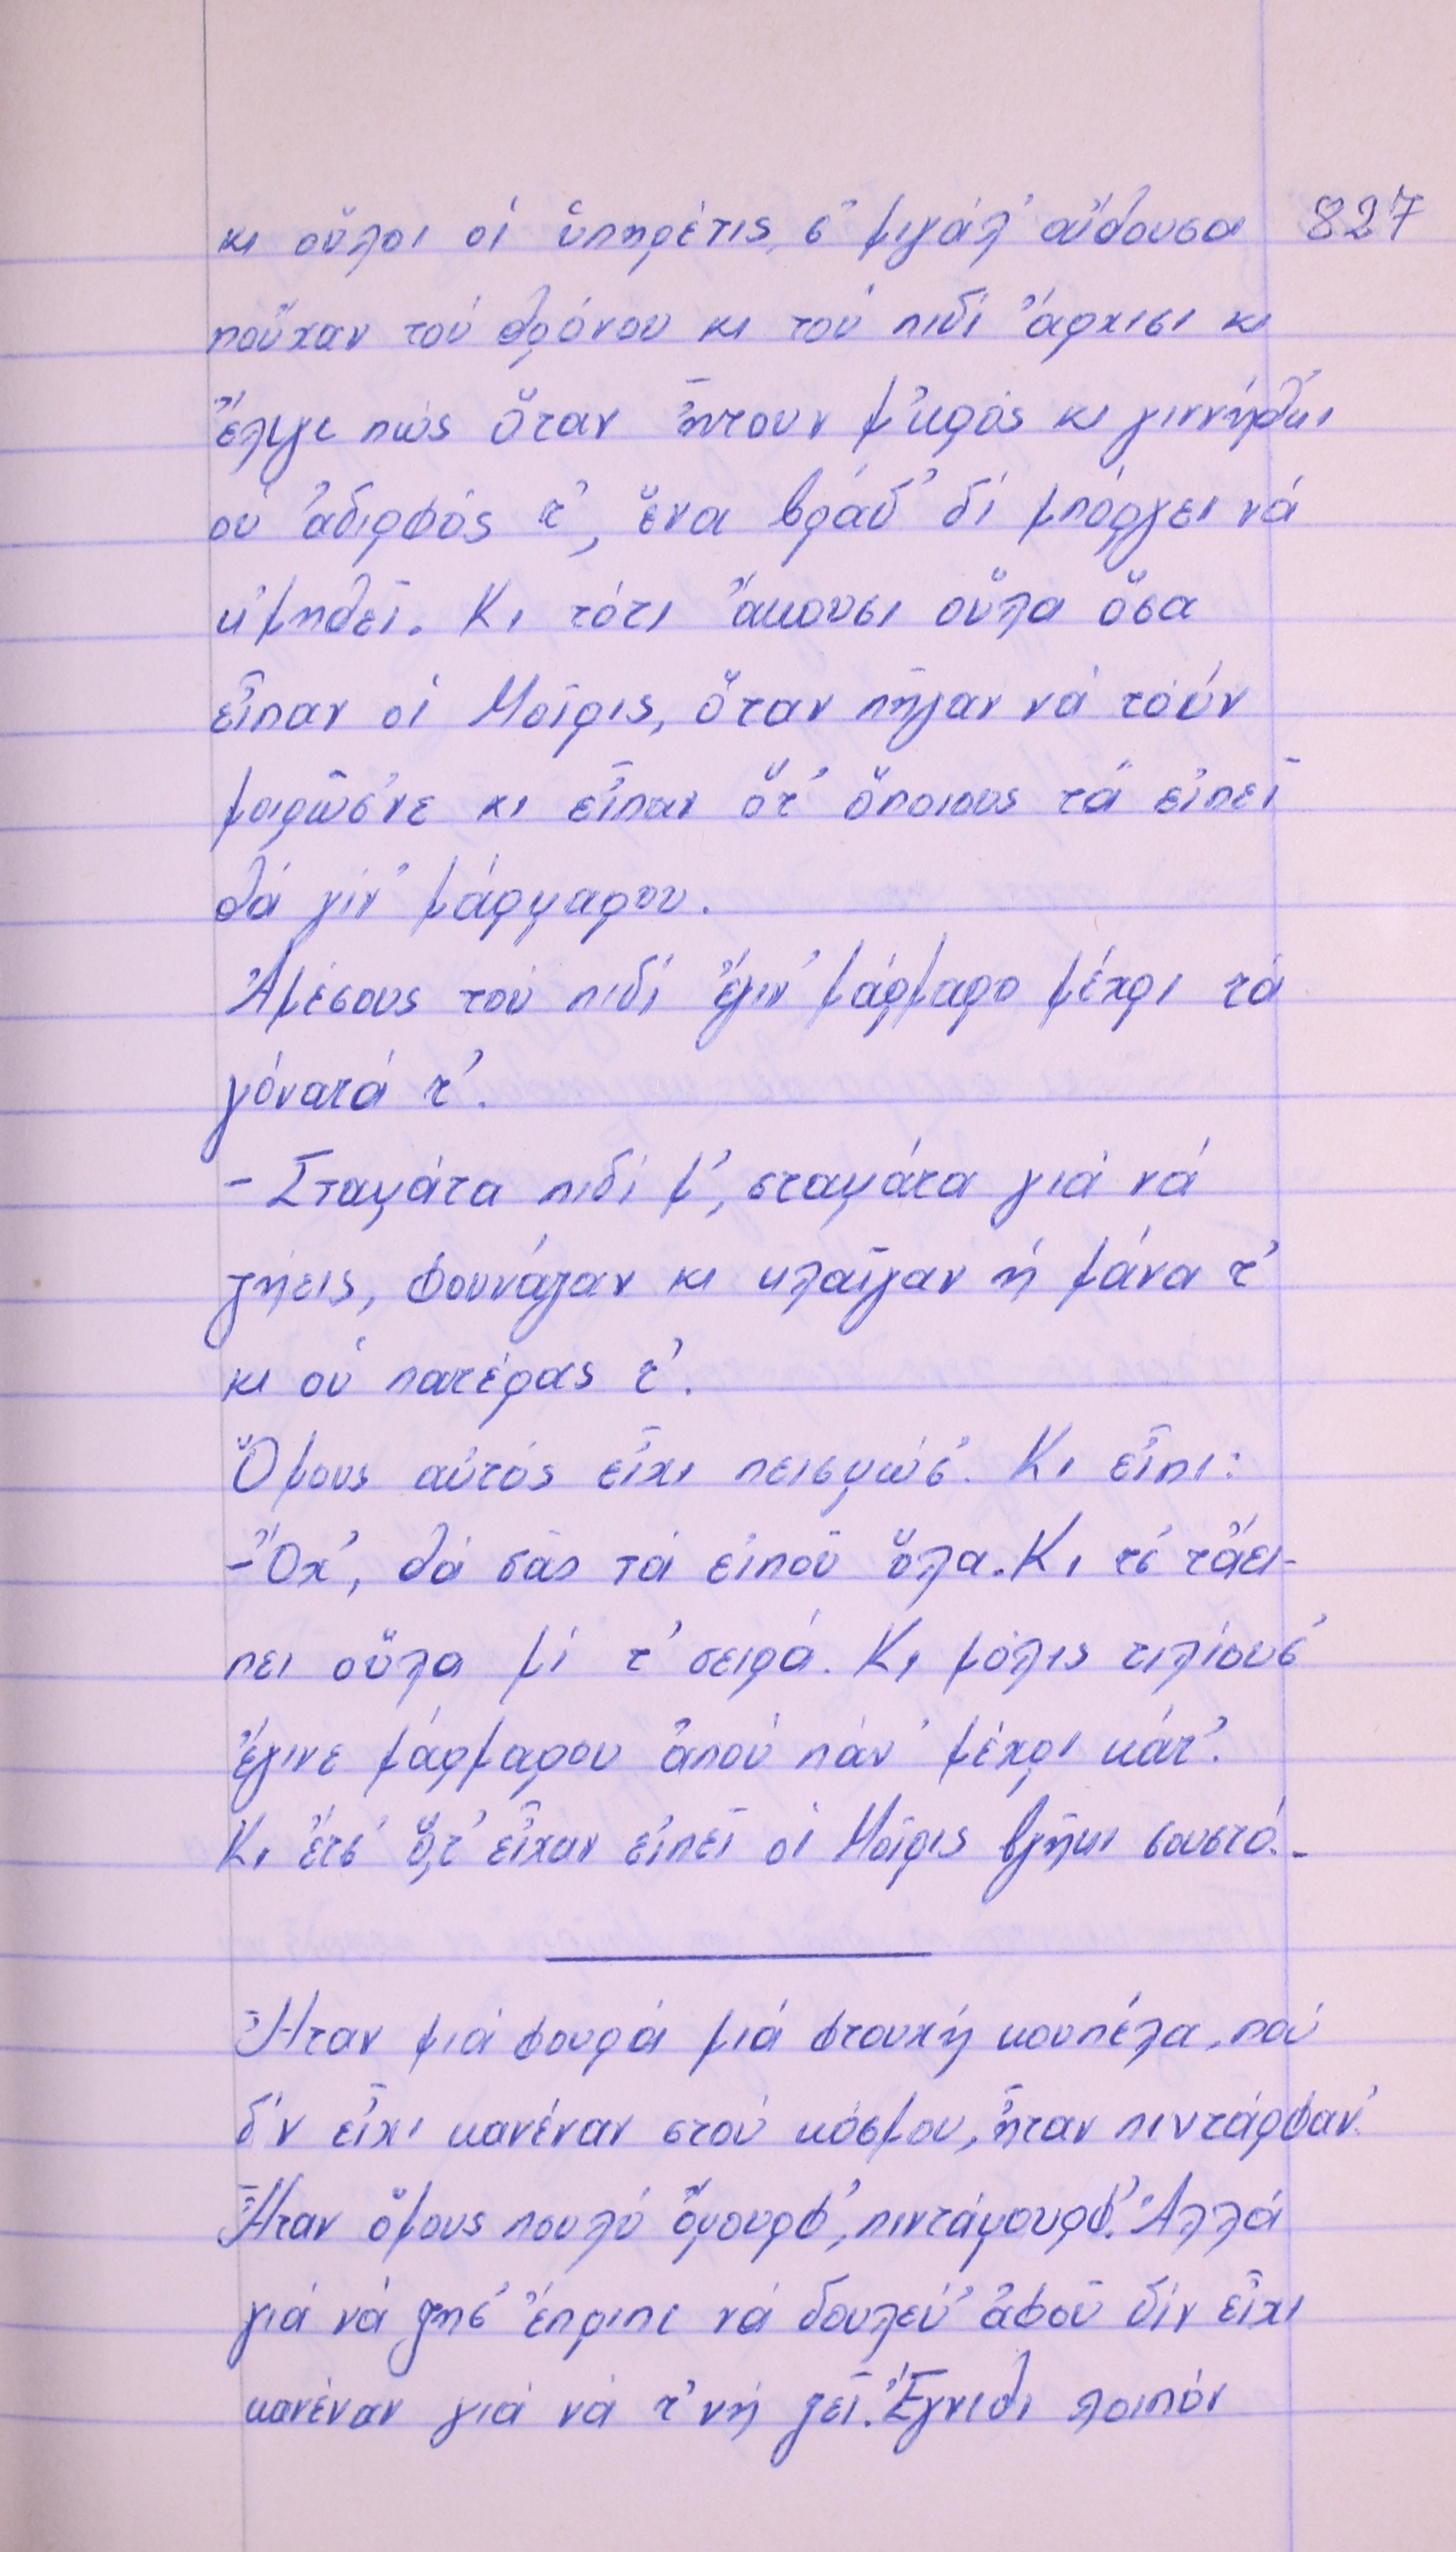 κι οὗλοι οἱ ὑπηρέτις, σ' μιγάλ' αἴθουσα 827
ποὖχαν τοὺ θρόνου κι τοὺ πιδὶ ἄρχισι κι
ἔλιγι πώς ὅταν ἦτουν μ'κρός κι γιννήθκι
οὑ ἀδιρφός τ', ἕνα βράδ' δὶ μπόργει νά
κ'μηθεῖ. Κι τότι ἄκουσι οὗλα ὅσα
εἶπαν οἱ Μοῖρις, ὅταν πῆγαν νά τοὺν
μοιρῶσ'νε κι εἶπαν ὅτ' ὅποιους τά εἰπεῖ
θά γίν' μάρμαρου.
Ἀμέσους τοὺ πιδὶ ἔγιν' μάρμαρο μέχρι τά
γόνατά τ'.
- Σταμάτα πιδί μ', σταμάτα γιά νά
ζήεις, φουνάζαν κι κλαῖγαν ἡ μάνα τ'
κι οὑ πατέρας τ'.
Ὅμους αὐτός εἶχι πεισμώσ'. Κι εἶπι:
- Ὄχ', θά σᾶς τά εἰποῦ ὅλα. Κι τσ' τἄει-
πει οὗλα μί τ' σειρά. Κι μόλις τιλίουσ'
ἔγινε μάρμαρου ἀπού πάν' μέχρι κάτ'.
Κι ἔτσ' ὅ,τ' εἶχαν εἰπεῖ οἱ Μοῖρις βγῆκι σουστό.-
Ἦταν μιά φουρά μιά φτουχή κουπέλα, πού
δ'ν εἶχι κανέναν στοὺ κόσμου, ἦταν πιντάρφαν'.
Ἦταν ὅμους πουλύ ὄμουρφ', πιντάμουρφ'. Ἀλλά
γιά νά ζήσ' ἔπριπι νά δουλεύ' ἀφοῦ δίν εἶχι
κανέναν γιά νά τ' νή ζεῖ. Ἔγνιθι λοιπόν